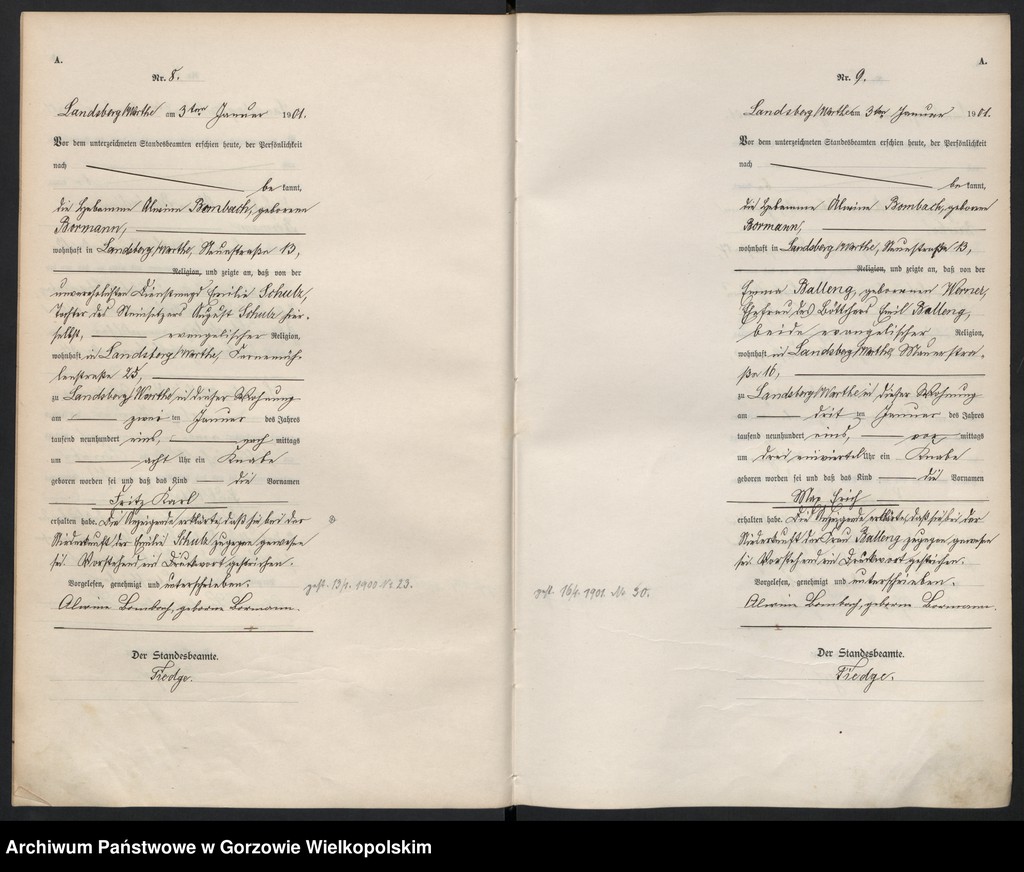 A.
Nr. 8.
Landsberg/Warthe am 3ten Januar 1901.
Vor dem unterzeichneten Standesbeamten erschien heute, der Persönlichkeit
nach
be kannt,
die Hebamme Alwine Bombach, geborene
Bormann,
wohnhaft in Landsberg/Warthe, Neuestraße 13,
Religion, und zeigte an, daß von der
unverehelichten Dienstmagd Emilie Schulz,
Tochter des Steinsetzers August Schulz hier-
selbst, evangelischer Religion,
wohnhaft in Landsberg/Warthe,
25,
zu Landsberg/Warthe in dieser Wohnung
am zwei ten Januar des Jahres
tausend neunhundert eins, nach mittags
um acht Uhr ein Knabe
geboren worden sei und daß das Kind die Vornamen
Fritz Karl
erhalten habe. Die Anzeigende erklärte, daß sie bei der
Niederkunft der Emilie Schulz zugegen gewesen
sei. Vorstehend ein Druckwort gestrichen.
Vorgelesen, genehmigt und unterschrieben.
Alwine Bombach, geborne Bormann.
Der Standesbeamte.
Fiedge.
gest. 13/1. 1900 Nr 23.
A.
Nr. 9.
Landsberg/Warthe am 3ten Januar 1901.
Vor dem unterzeichneten Standesbeamten erschien heute, der Persönlichkeit
nach
be kannt,
die Hebamme Alwine Bombach, geborene
Bormann,
wohnhaft in Landsberg/Warthe, Neuestraße 13,
Religion, und zeigte an, daß von der
Emma Balleng, geborenen Werner,
Ehefrau des Böttchers Emil Balleng,
beide evangelischer Religion,
wohnhaft in Landsberg/Warthe, Mauerstra-
ße 16,
zu Landsberg/Warthe in dieser Wohnung
am drit ten Januar des Jahres
tausend neunhundert eins, vor mittags
um drei einviertel Uhr ein Knabe
geboren worden sei und daß das Kind die Vornamen
Max Erich
erhalten habe. Die Anzeigende erklärte, daß sie bei der
Niederkunft der Frau Balleng zugegen gewesen
sei. Vorstehend ein Druckwort gestrichen.
Vorgelesen, genehmigt und unterschrieben.
Alwine Bombach, geborne Bormann.
Der Standesbeamte.
Fiedge.
gest. 16/4. 1901. Nr. 50.
Archiwum Państwowe w Gorzowie Wielkopolskim